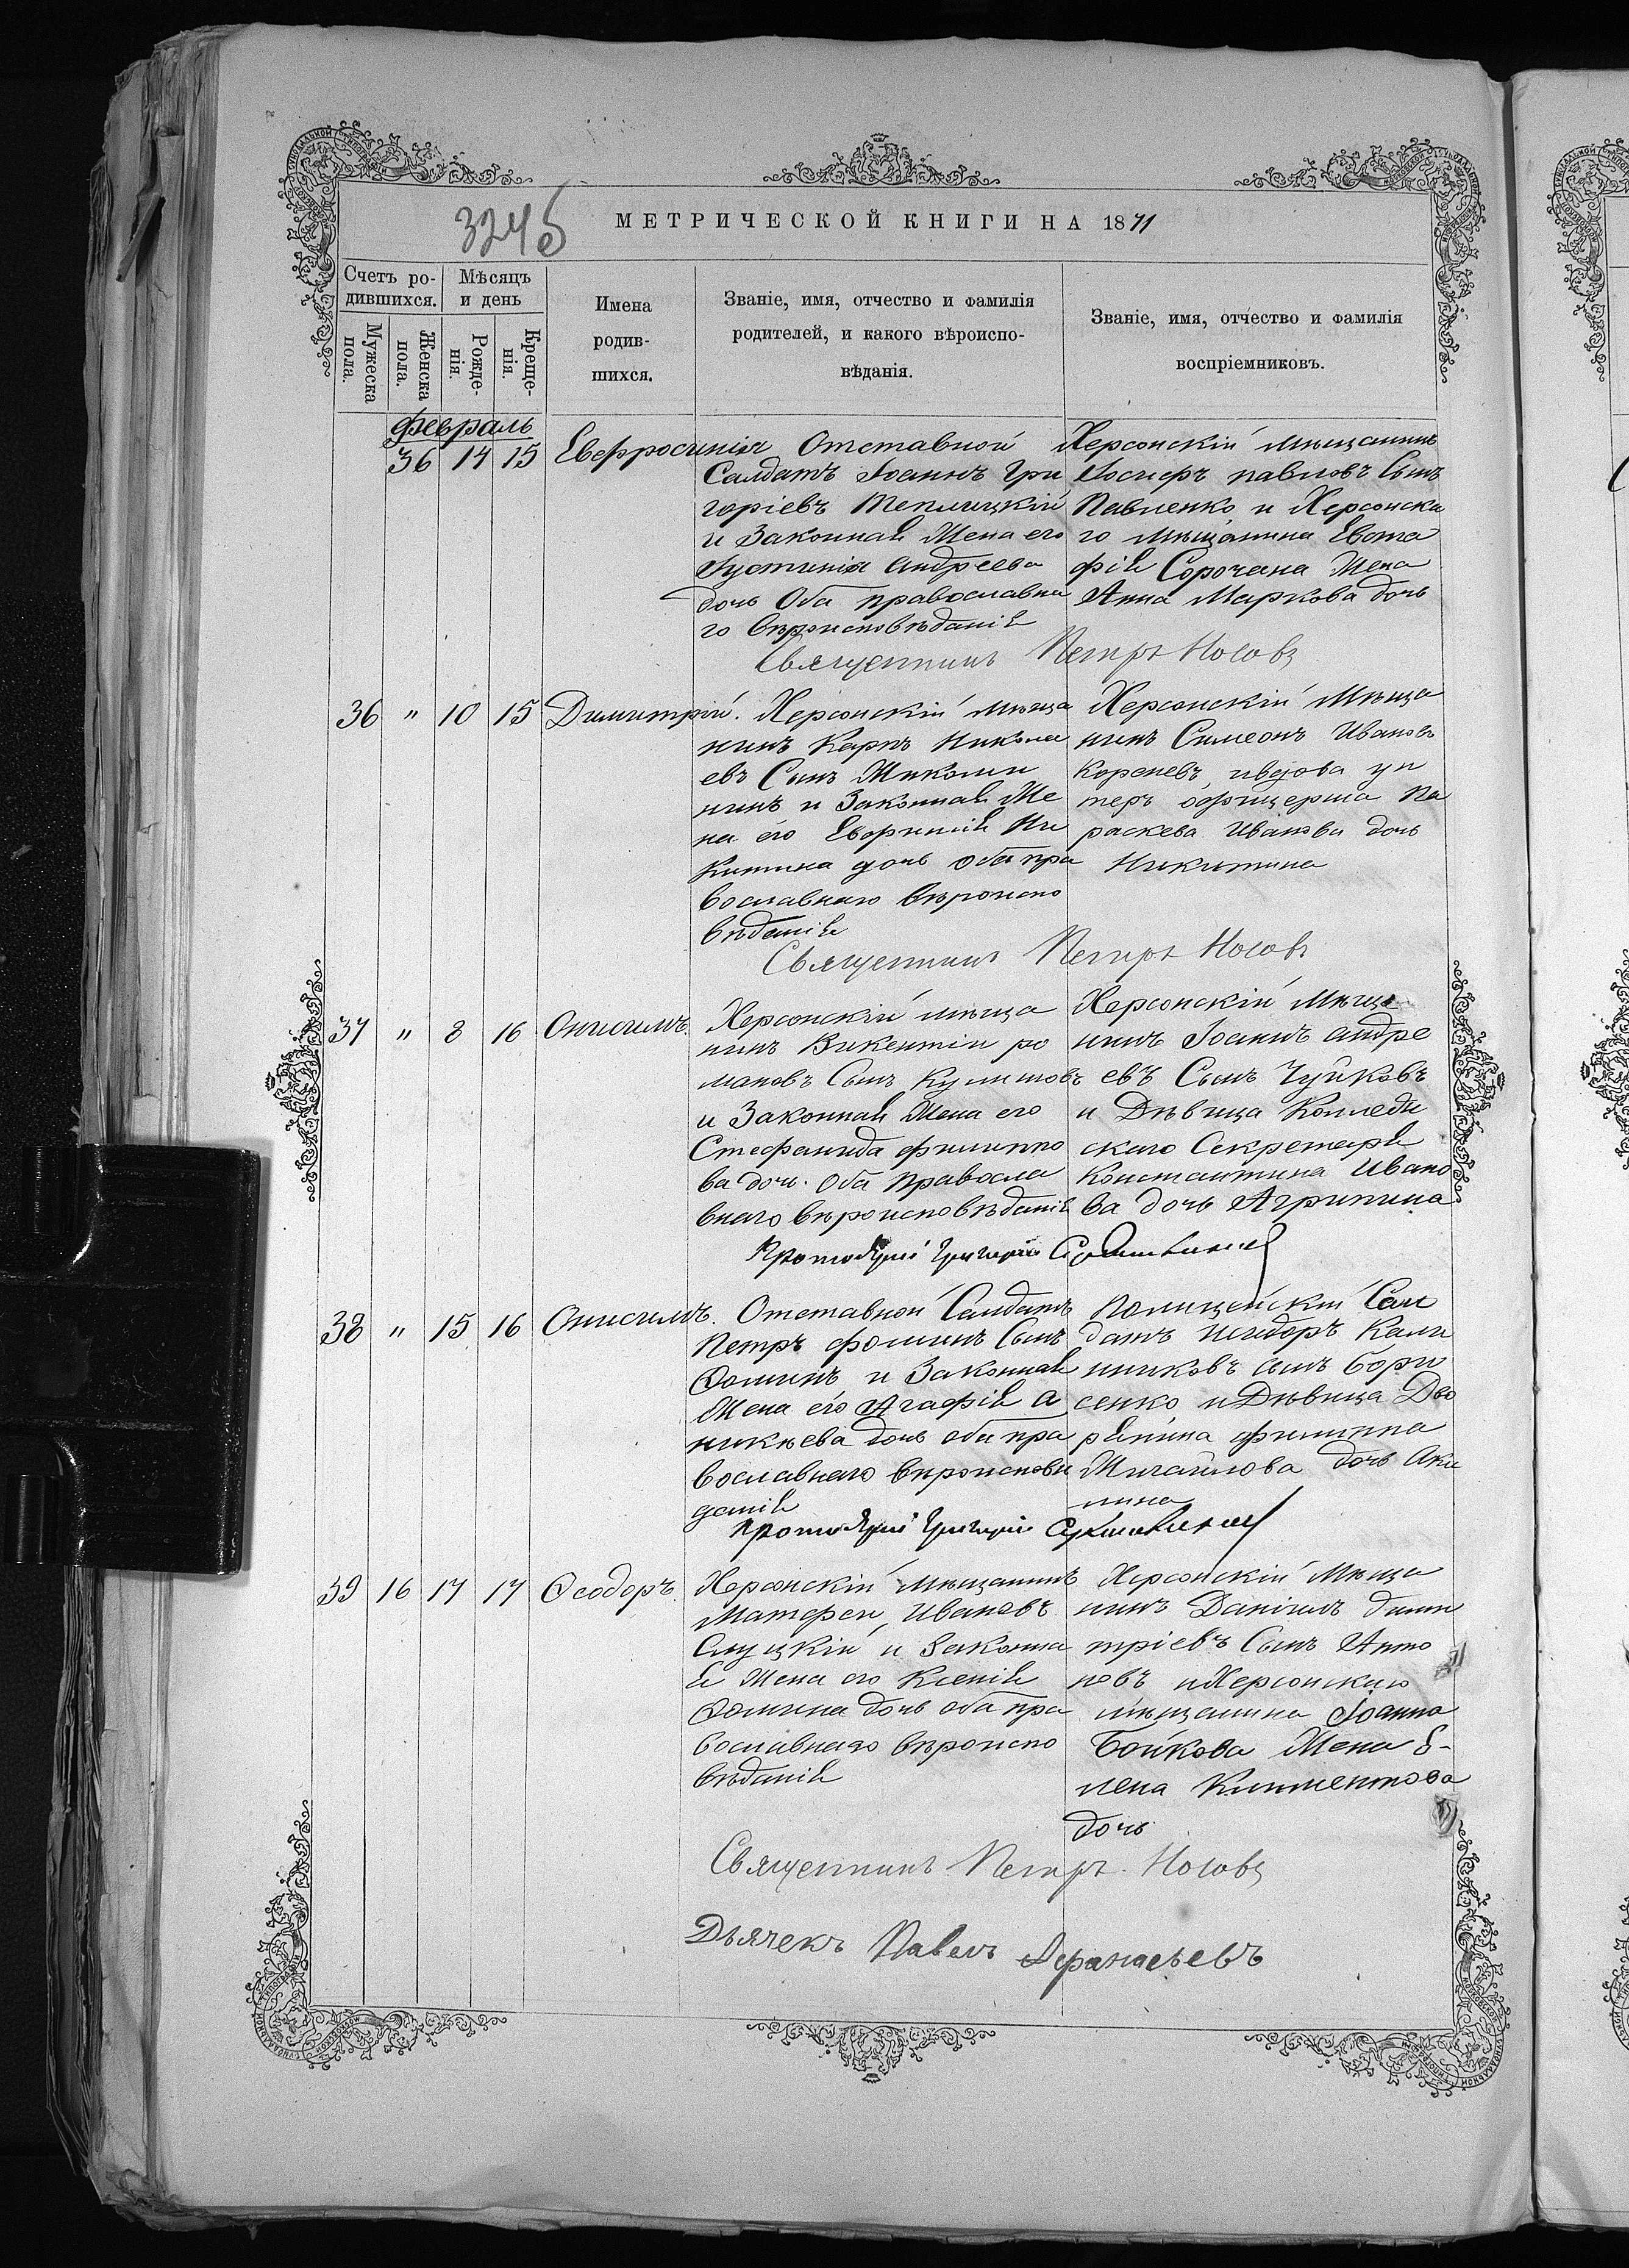 324б
МЕТРИЧЕСКОЙ КНИГИ НА 1871
Счетъ ро-
дившихся.
Мѣсяцъ
и день
Мужеска
пола.
Женска
пола.
Рожде-
нія.
Креще-
нія.
Имена
родив-
шихся.
Званіе, имя, отчество и фамилія
родителей, и какого вѣроиспо-
вѣданія.
Званіе, имя, отчество и фамилія
воспріемниковъ.
Февраль
36 14 15 Евфросинія
Отставной
Салдатъ Іоаннъ Гри
горіевъ Теплицкій
и Законная Жена его
Іустинія Андреева
дочь Оба православна
го вѣроисповѣданія
Херсонскій мѣщанинъ
Іосифъ павловъ Сынъ
Павленко и Херсонска
го мѣщанина Евста
фія Сорочана Жена
Анна Маркова дочь
Священникъ Петръ Носовъ
36 " 10 15 Димитрій.
Херсонскій мѣща
нинъ Карпъ Никола
евъ Сынъ
нинъ и Законная Же
на его Ни
китина дочь оба пра
вославнаго вѣроиспо
вѣданія
Херсонскій Мѣща
нинъ Симеонъ Ивановъ
Кореневъ, и вдова ун
теръ офицерша Па
раскева Иванова дочь
Никитина
Священникъ Петръ Носовъ
37 " 8 16 Онисимъ
Херсонскій мѣща
нинъ Викентій ро
мановъ Сынъ
и Законная Жена его
Стефанида филиппо
ва дочь. Оба Правосла
внаго вѣроисповѣданія
Херсонскій Мѣща
нинъ Іоаннъ андре
евъ Сынъ Чуйковъ
и Дѣвица
скаго Секретаря
Константина Ивано
ва дочь Агрипина
Протоіерей Григорій
38 " 15 16 Онисимъ.
Отставной Салдатъ
Петръ фоминъ Сынъ
Ѳоминъ и Законная
Жена его Агафія а
никѣева дочь оба пра
вославнаго вѣроисповѣ
данія
Полицейскій Сал
датъ Исидоръ Кали
никовъ сынъ Бори
сенко и Дѣвица Дво
рянина филиппа
Михайлова дочь Аки
лина
Протоіерей Григорій
39 16 17 17 Ѳеодоръ
Херсонскій мѣщанинъ
Матфей Ивановъ
Слуцкій и Законна
я Жена его Ксенія
Ѳомина дочь оба пра
вославнаго вѣроиспо
вѣданія
Херсонскій Мѣща
нинъ Даніилъ дими
тріевъ Сынъ Анто
новъ и Херсонскаго
мѣщанина Іоанна
Бойкова Жена Е-
лена Климентова
дочь
Священникъ Петръ Носовъ
Дьячекъ Павелъ Афанасьевъ